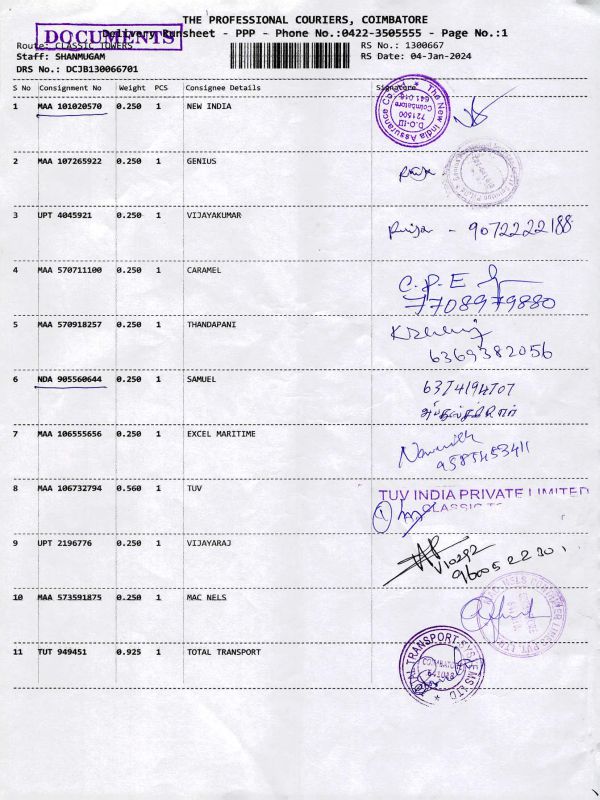 THE PROFESSIONAL COURIERS, COIMBATORE
Delivery Runsheet - PPP - Phone No.:0422-3505555 - Page No.:1
DOCUMENTS
Route: CLASSIC TOWERS
RS No.: 1300667
Staff: SHANMUGAM
RS Date: 04-Jan-2024
DRS No.: DCJB130066701
S No Consignment No Weight PCS Consignee Details Signature
1 MAA 101020570 0.250 1 NEW INDIA
The New India Assurance Co. Ltd
D.O-III
721500
Coimbatore
641 018
2 MAA 107265922 0.250 1 GENIUS
3 UPT 4045921 0.250 1 VIJAYAKUMAR
- 9072222188
4 MAA 570711100 0.250 1 CARAMEL
C.P.E
7708979880
5 MAA 570918257 0.250 1 THANDAPANI
6369382056
6 NDA 905560644 0.250 1 SAMUEL
6374194707
7 MAA 106555656 0.250 1 EXCEL MARITIME
9585453411
8 MAA 106732794 0.560 1 TUV
TUV INDIA PRIVATE LIMITED
9 UPT 2196776 0.250 1 VIJAYARAJ
10 MAA 573591875 0.250 1 MAC NELS
11 TUT 949451 0.925 1 TOTAL TRANSPORT
TOTAL TRANSPORT SYSTEMS LTD
COIMBATORE
641018